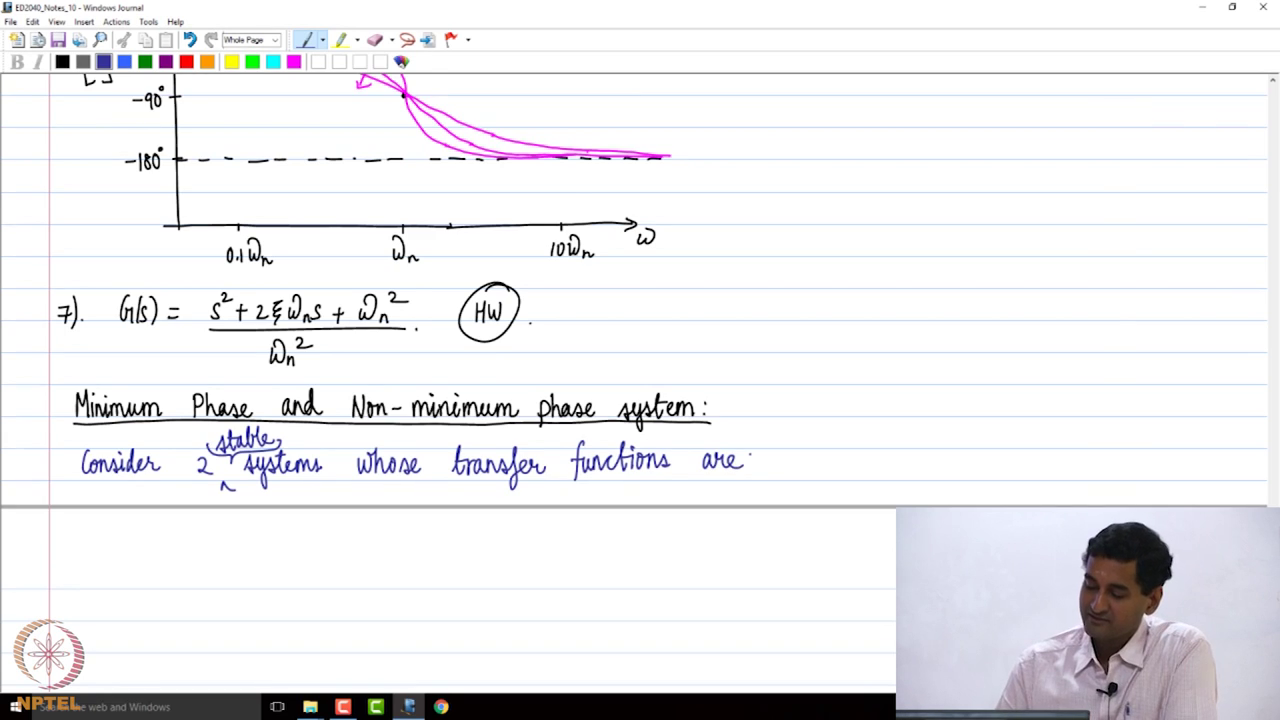 ED2040_Notes_10 - Windows Journal
File Edit View Insert Actions Tools Help
Whole Page
B I
-90°
-180°
0.1ωn ωn 10ωn ω
7). G(s) = s² + 2ξωns + ωn² HW
ωn²
Minimum Phase and Non-minimum phase system:
stable
Consider 2 systems whose transfer functions are
NPTEL
Search the web and Windows